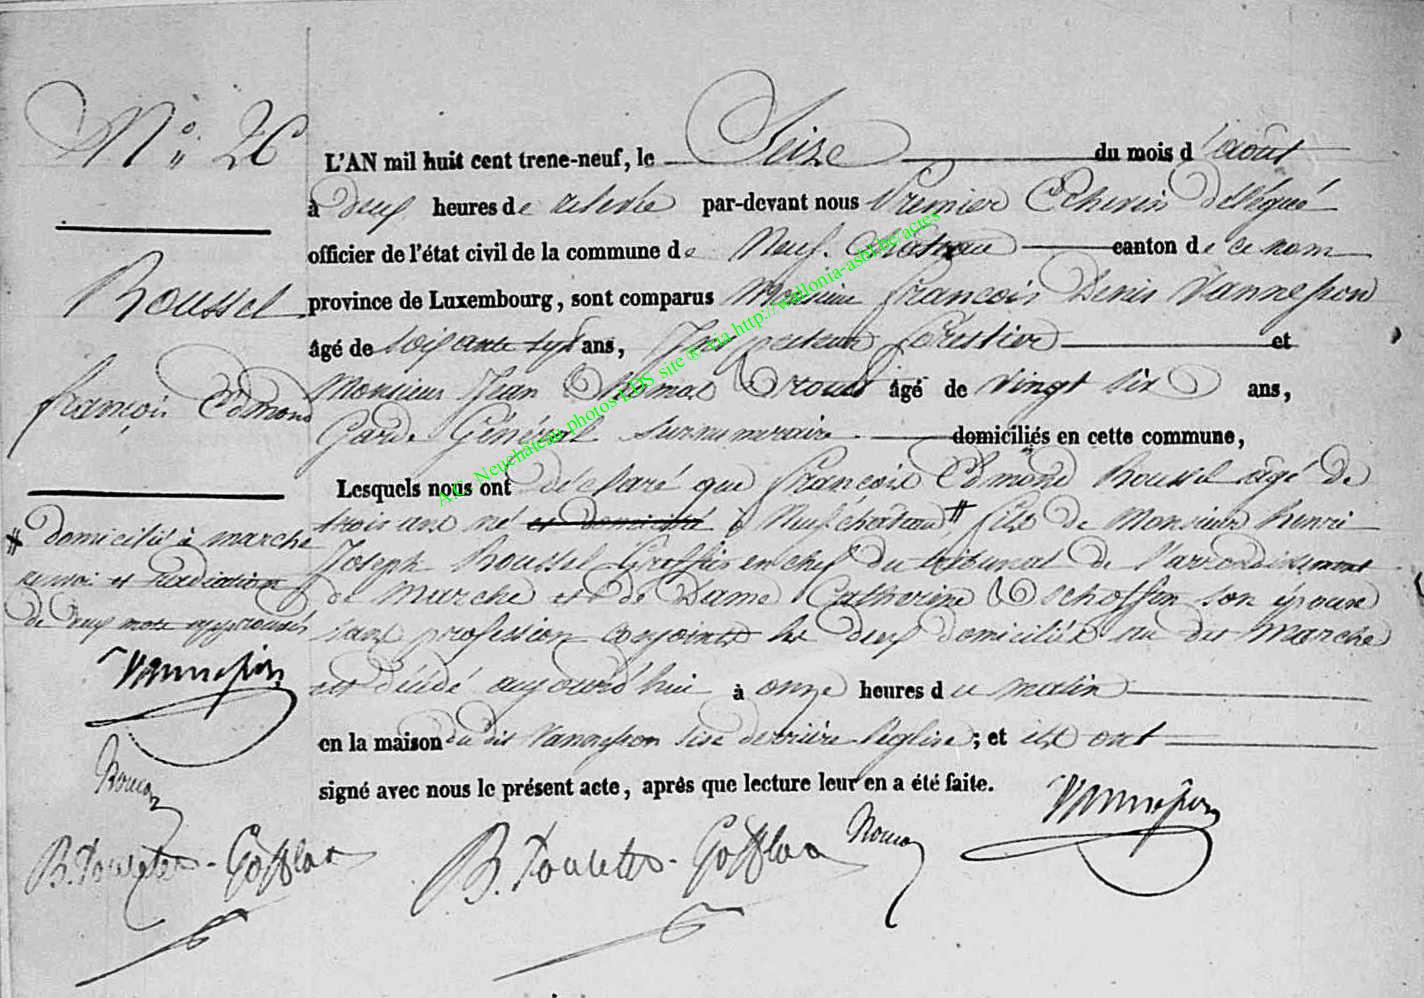 N° 26
Roussel
françois Edmond
# domicilié à marche
renvoi et radiation
de deux mots approuvés
Vannesson
B. Poncelet - Gofflot
L'AN mil huit cent trene-neuf, le Seize du mois d'août
à deux heures de relevée par-devant nous Premier Echevin délégué
officier de l'état civil de la commune de Neuf-château canton de ce nom
province de Luxembourg, sont comparus Monsieur françois Denis Vannesson
âgé de soixante sept ans, Inspecteur forestier et
Monsieur Jean Thomas âgé de vingt six ans,
Garde Général surnuméraire domiciliés en cette commune,
Lesquels nous ont déclaré que françois Edmond Roussel âgé de
trois ans né et domicilié à Neufchateau # fils de Monsieur henri
Joseph Roussel Greffier en chef du tribunal de l'arrondissement
de Marche et de Dame Catherine Tschoffen son épouse
sans profession conjoints les deux domiciliés au dit Marche
est décédé aujourd'hui à onze heures du matin
en la maison du dit Vannesson sise derrière l'église ; et ils ont
signé avec nous le présent acte, après que lecture leur en a été faite.
Vannesson
B. Poncelet - Gofflot
A.E. Neuchâteau photos FDS site ® via http://wallonia-asbl.be/actes